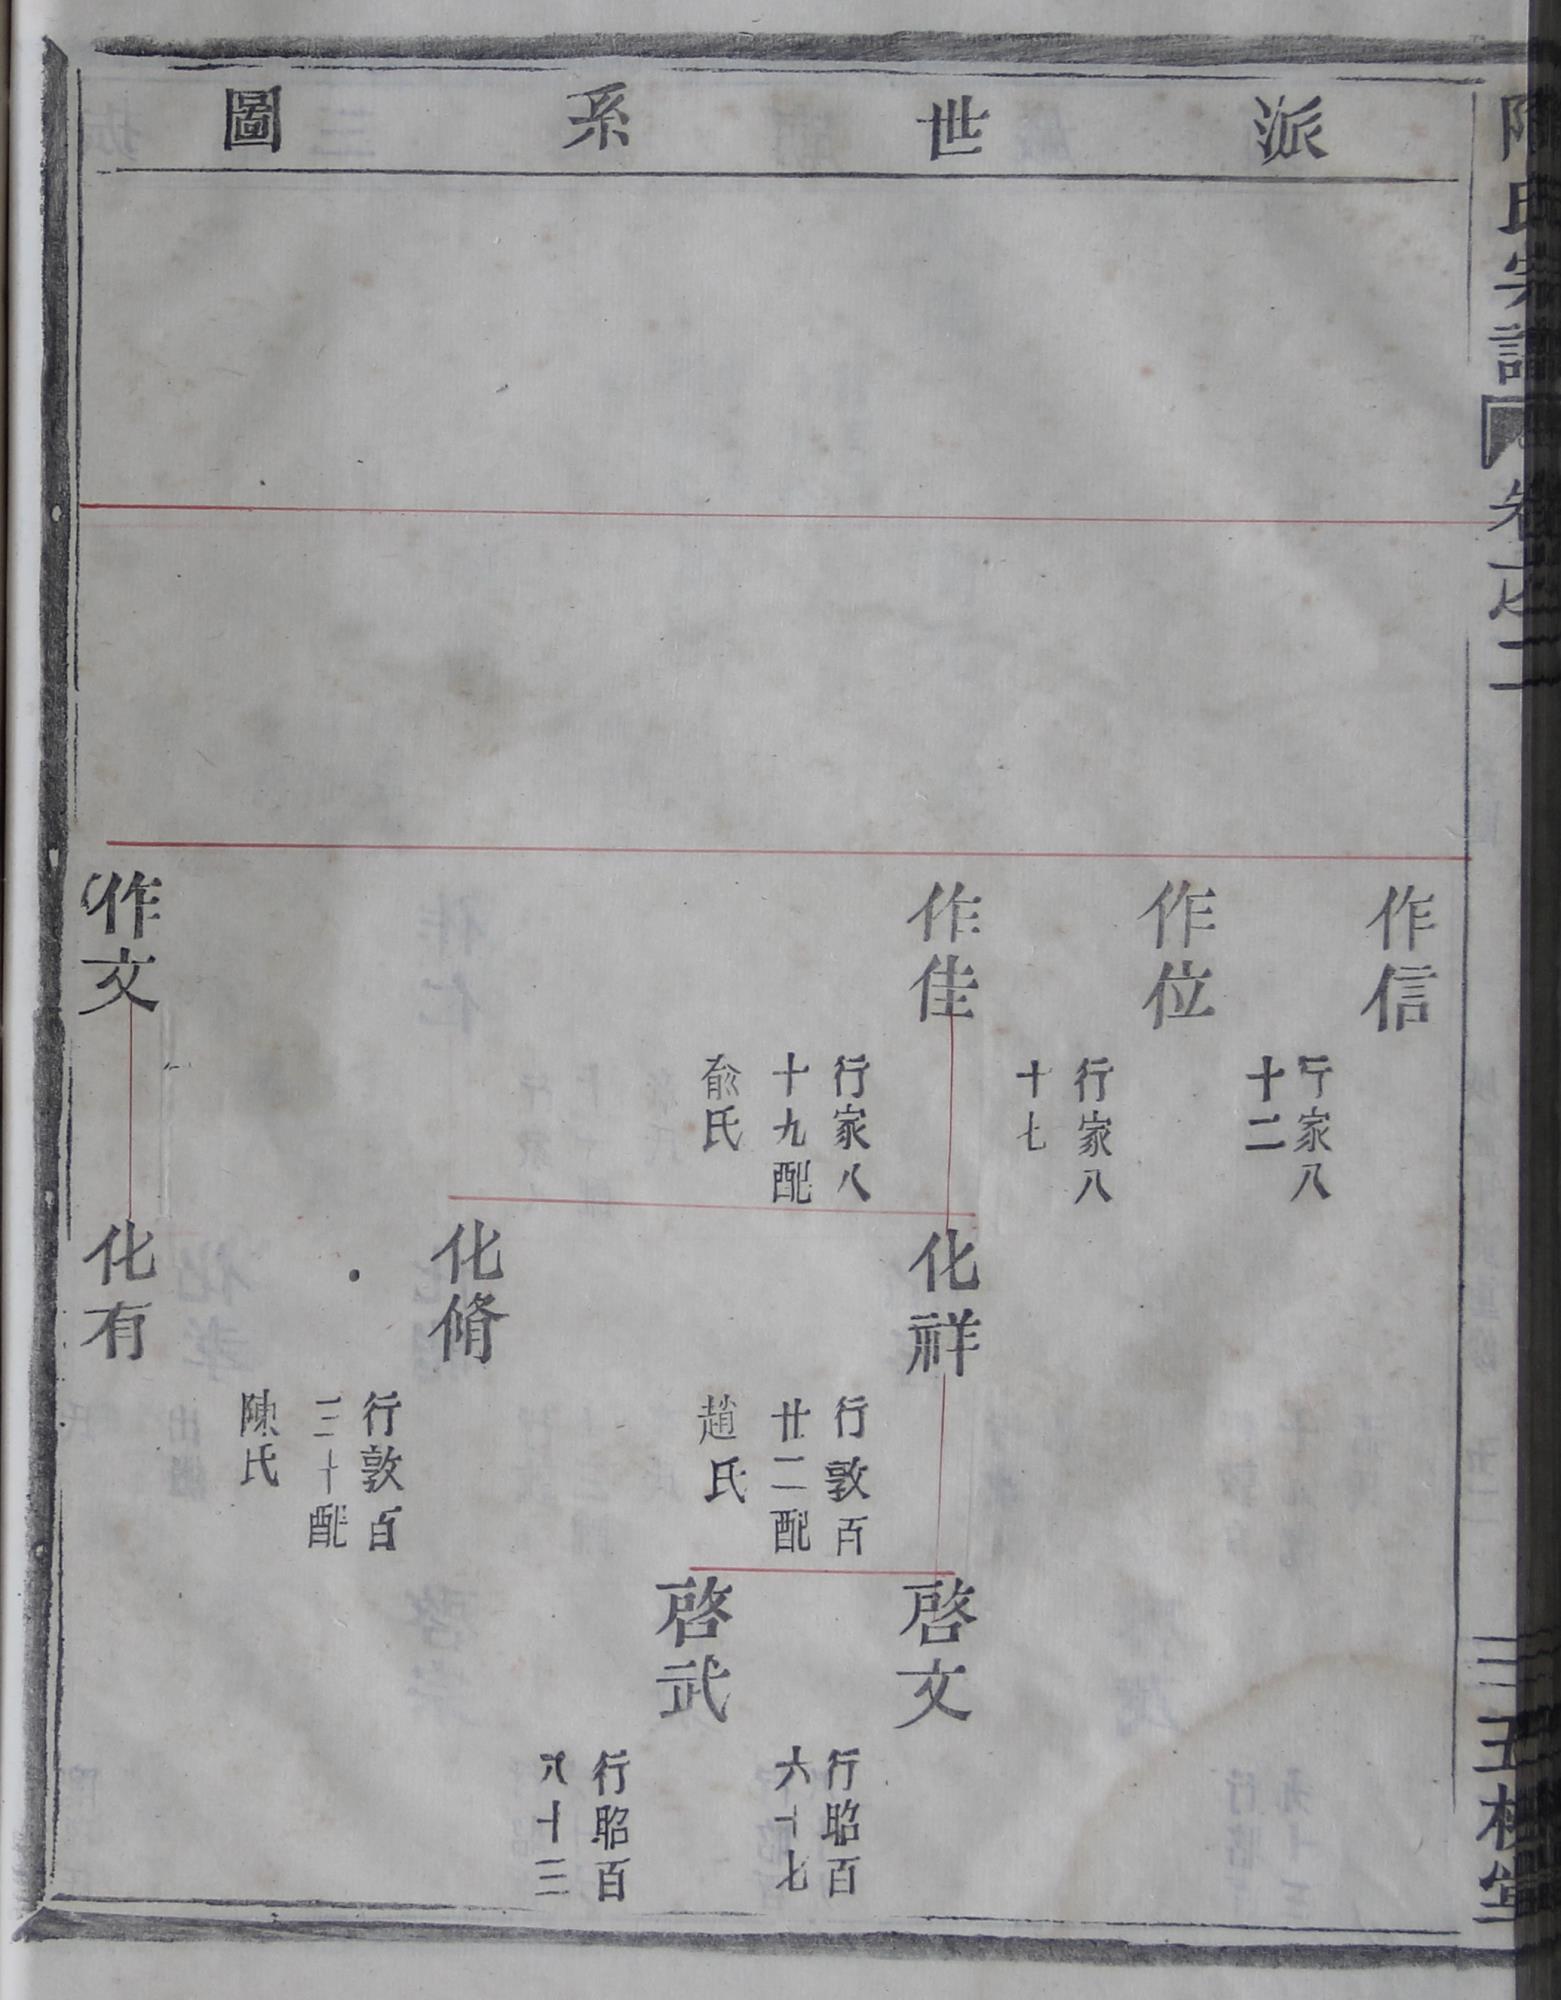 陳氏宗譜
卷之二
三
五桂堂
派世系圖
作信
行家八
十二
作位
行家八
十七
作佳
行家八
十九配
俞氏
作文
化祥
行敦百
廿二配
趙氏
化脩
行敦百
三十配
陳氏
化有
啓文
行昭百
六十七
啓武
行昭百
八十三